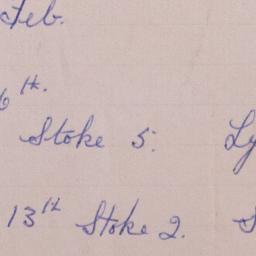 Feb.
6th.
Stoke 5. Ly
13th Stoke 2. S